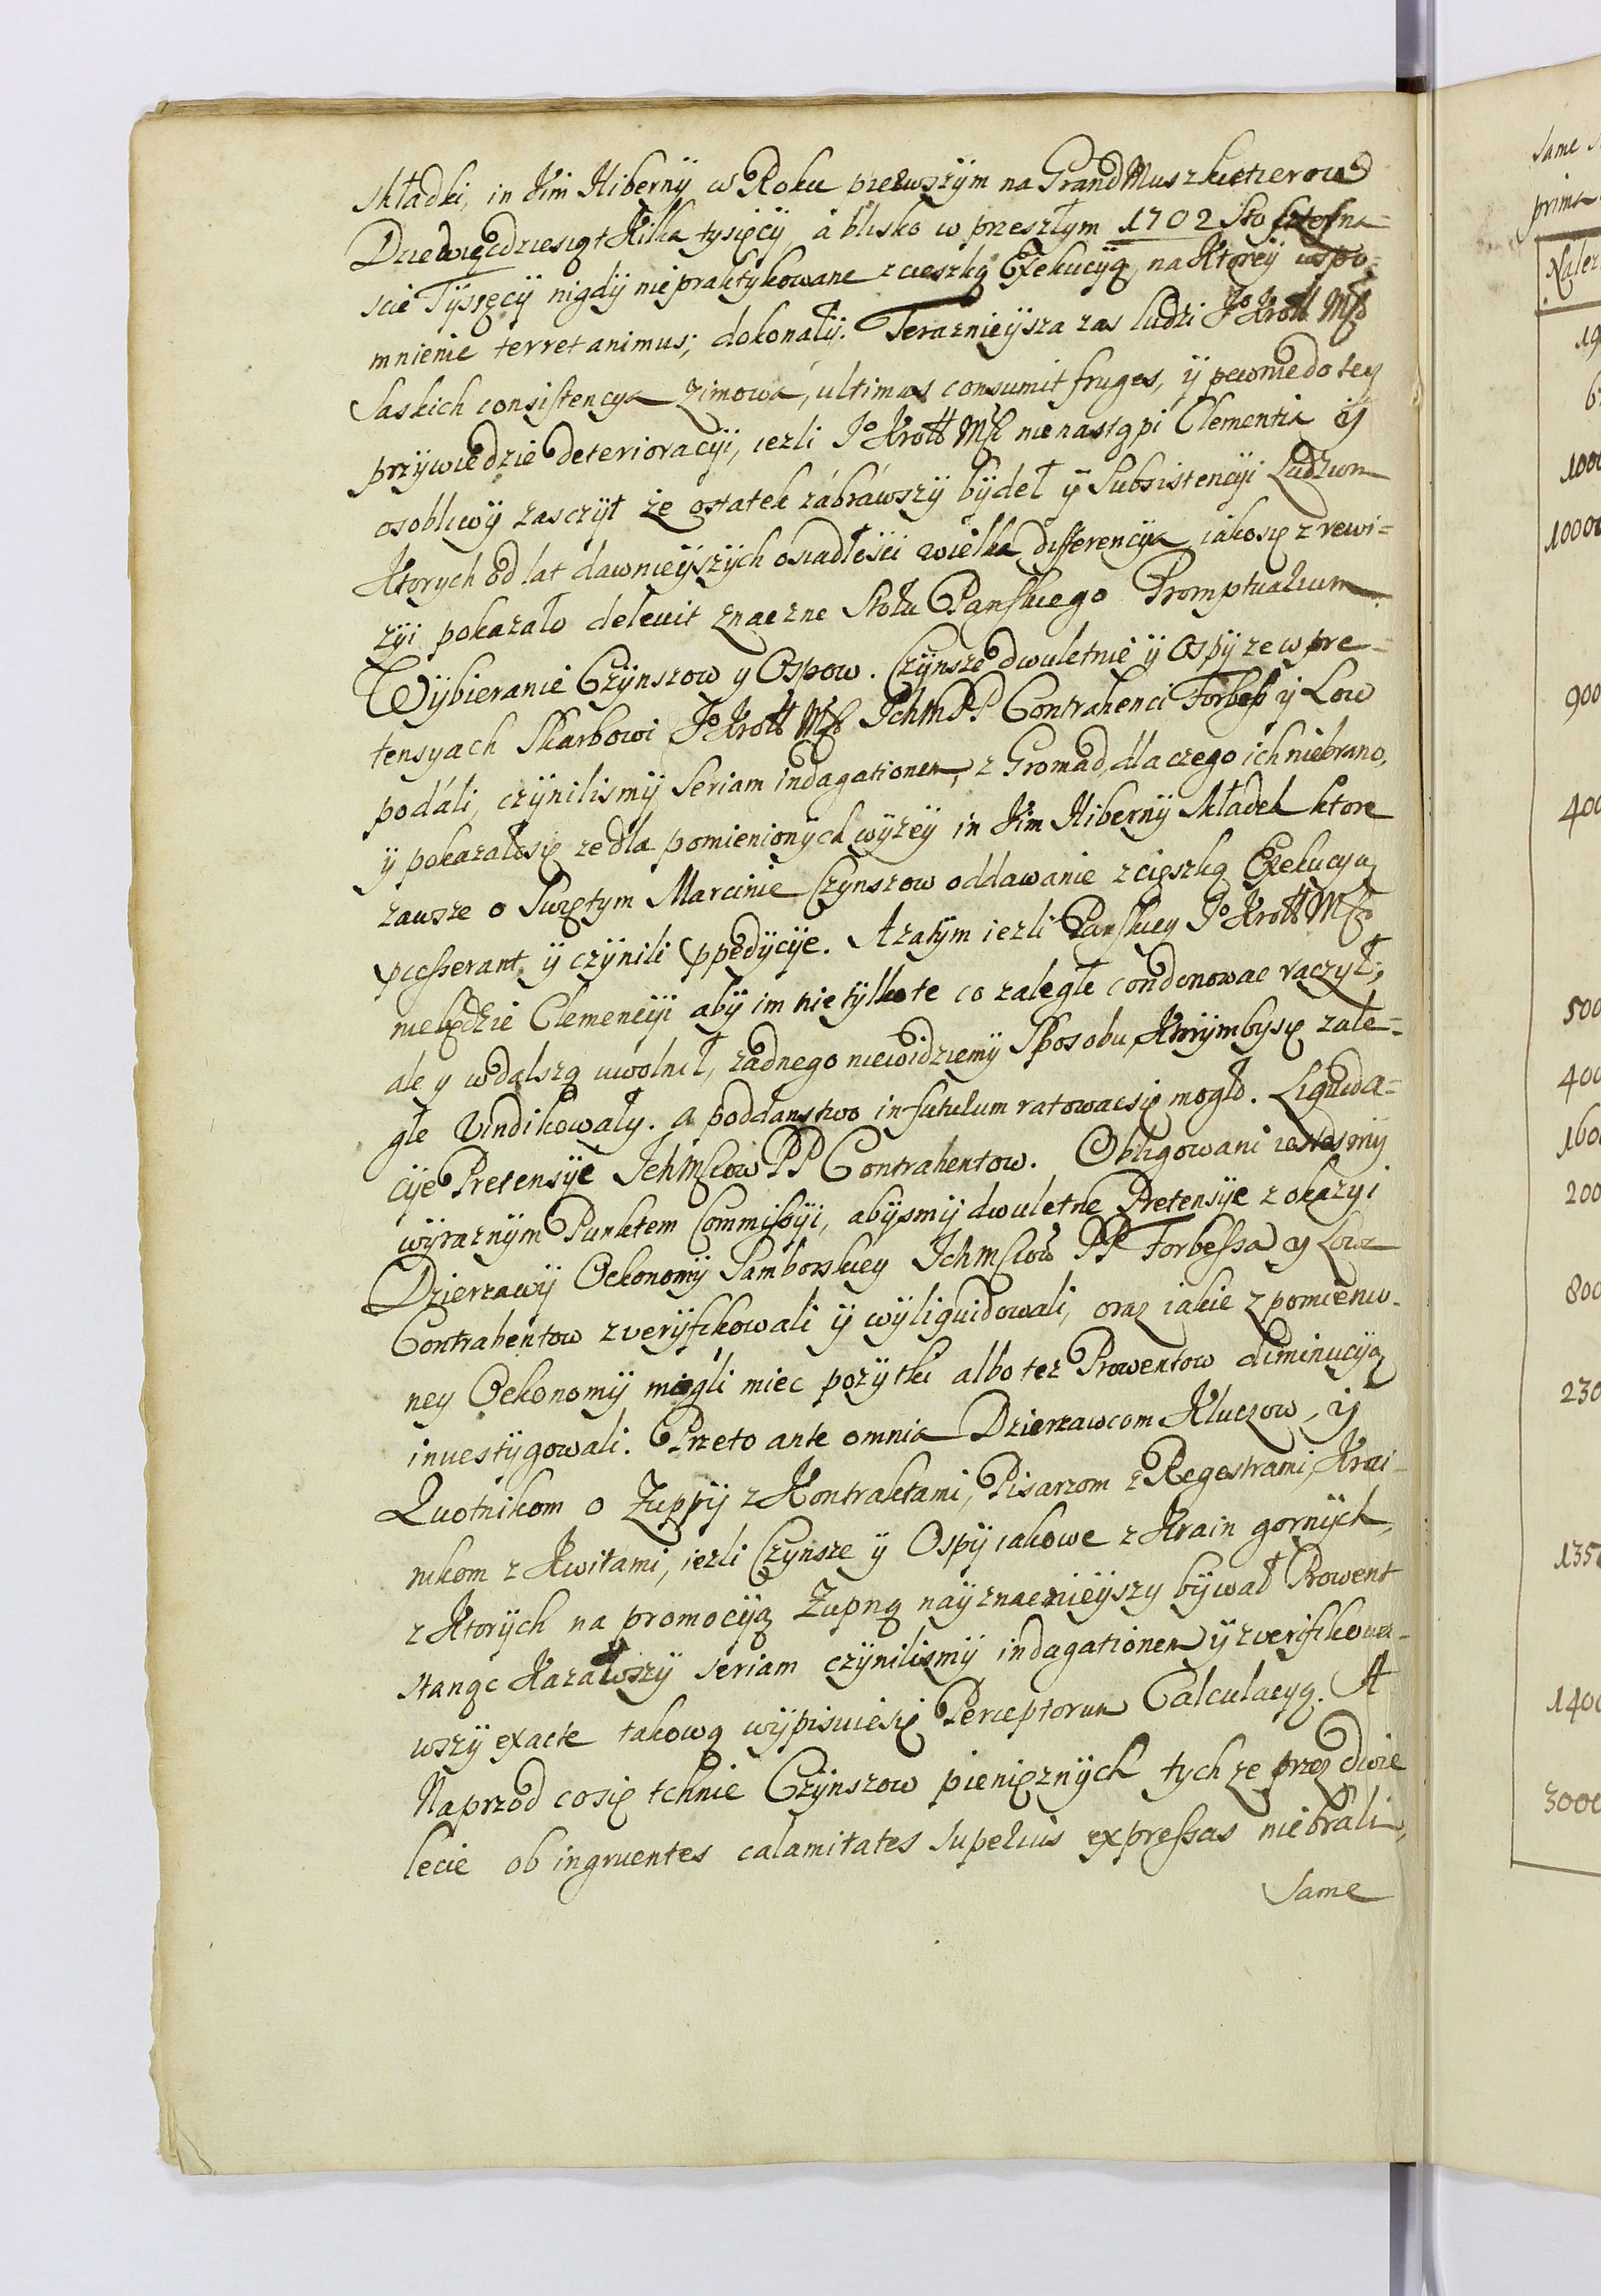 składki, in Vim Hiberny w Roku pierwszym na Grand Muszkietierow
Dziewięcdziesiąt Kilka tysięcy, á blisko w przeszłym 1702 Sto sztefna=
scie Tysięcy nigdy niepraktykowane z cieszką Exekucyą, na Ktorey wspo=
mnienie terret animus; dokonały. Teraznieysza zas ludzi Jo Kroll Msci
Saskich consistencya Zimowa, ultimas consumit fruges, y pewnie do tey
przywiedzie deterioracyi, iezli Jo Kroll Msci nie nastąpi Clementia y
osobliwy zasczyt że ostatek zábráwszy bydeł y Subsistencyi Ludziom
Ktorych od lat dawnieyszych osiadłości wielka differencya iako się z rewi=
zyi pokazało delevit znaczne Stołu Panskiego Promptuarium.
Wybieranie Czynszow y Ospow. Czynsze dwuletnie y Ospy ze w pre=
tensyach Skarbowi Jo Kroll Msci Ichm PP Contrahenci Forbess y Low
podáli, czynilismy Seriam indagationem, z Gromad, dla czego ich niebrano,
y pokazało się ze dla pomienionych wyzey in Vim Hiberny składek ktore
zawsze o Swiętym Marcinie Czynszow oddawanie z cięszką Exekucyą
presserant y czynili Ppedycye. A zatym iezli Panskiey Jo Kroll Msci
niebędzie Clemencyi aby im nie tylko te co zaległe condonowac raczył;
ale y w dalszą uwolnił, zadnego niewidziemy Sposobu, Ktorymby się zale=
głe Vindikowały. a poddanstwo in futurum ratowac się mogło. Liquida=
cye Pretensye IchMściow PP Contrahentow. Obligowani iestesmy
wyraznym Punktem Commissyi, abysmy dwuletne Pretensye z okazyi
Dzierzawy Oekonomij Samborskiey Ichmściow PP Forbessa y Low
Contrahentow zveryfikowali y wyliquidowali, oraz iakie z pomienio=
ney Oekonomij mogli miec pozytki albo tez Prowentow diminucyą
investygowali. Przeto ante omnia Dzierzawcom Kluczow, y
Quotnikom o Zuppy z Kontraktami, Pisarzom z Regestrami, Krai=
nikom z Kwitami, iezli Czynsze y Ospy iakowe z Krain gornych,
z Ktorych na promocyą Zupną nayznacznieyszy bywał Prowent
stanąc Kazawszy seriam czynilismy indagationem y zverifikowa=
wszy exacte takową wypisuie się Perceptorum Calculacyą. A
Naprzod co się tchnie Czynszow pieniężnych tych ze przez dwie
lecie ob ingruentes calamitates superius expressas niebráli,
Same
same
prima
Należ
1000
10000
900
400
500
400
160
200
800
230
135
1400
3000